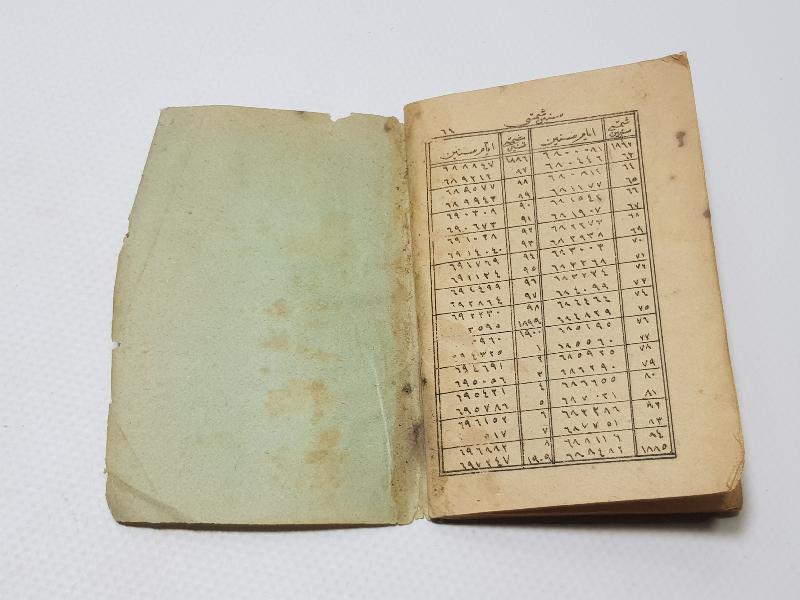 ٦٦ سنین شمسی
شمسی سنین ایام سنین شمسی سنین ایام سنین
١٨٦٢ ٦٨٠٠٨١ ١٨٨٦ ٦٨٨٨٤٧
٦٣ ٦٨٠٤٤٦ ٨٧ ٦٨٩٢١٢
٦٤ ٦٨٠٨١٢ ٨٨ ٦٨٩٥٧٧
٦٥ ٦٨١١٧٧ ٨٩ ٦٨٩٩٤٣
٦٦ ٦٨١٥٤٢ ٩٠ ٦٩٠٣٠٨
٦٧ ٦٨١٩٠٧ ٩١ ٦٩٠٦٧٣
٦٨ ٦٨٢٢٧٣ ٩٢ ٦٩١٠٣٨
٦٩ ٦٨٢٦٣٨ ٩٣ ٦٩١٤٠٤
٧٠ ٦٨٣٠٠٣ ٩٤ ٦٩١٧٦٩
٧١ ٦٨٣٣٦٨ ٩٥ ٦٩٢١٣٤
٧٢ ٦٨٣٧٣٤ ٩٦ ٦٩٢٤٩٩
٧٣ ٦٨٤٠٩٩ ٩٧ ٦٩٢٨٦٤
٧٤ ٦٨٤٤٦٤ ٩٨ ٦٩٣٢٣٠
٧٥ ٦٨٤٨٢٩ ١٨٩٩ ٣٥٩٥
٧٦ ٦٨٥١٩٥ ١٩٠٠ ٩٦٠
٧٧ ٦٨٥٥٦٠ ٦٩٤٣٢٥
٧٨ ٦٨٥٩٢٥ ٢ ٦٩٤٦٩١
٧٩ ٦٨٦٢٩٠ ٣ ٦٩٥٠٥٦
٨٠ ٦٨٦٦٥٥ ٤ ٦٩٥٤٢١
٨١ ٦٨٧٠٢١ ٥ ٦٩٥٧٨٦
٨٢ ٦٨٧٣٨٦ ٦ ٦٩٦١٥٢
٨٣ ٦٨٧٧٥١ ٧ ١٧
٨٤ ٦٨٨١١٦ ٨ ٦٩٦٨٨٢
١٨٨٥ ٦٨٨٤٨٢ ١٩٠٩ ٦٩٧٢٤٧